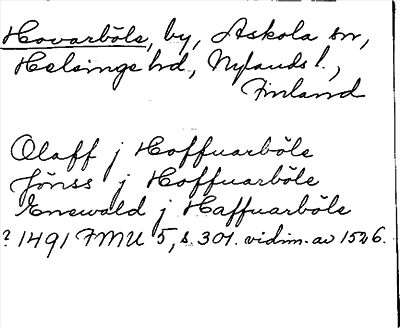 Hovarböle, by, Askola sn,
Helsinge hd, Nylands l.,
Finland
Olaff j Hoffuarböle
Jönss j Hoffuarböle
Enewald j Haffuarböle
? 1491 FMU 5, s. 301. vidim. av 1526.